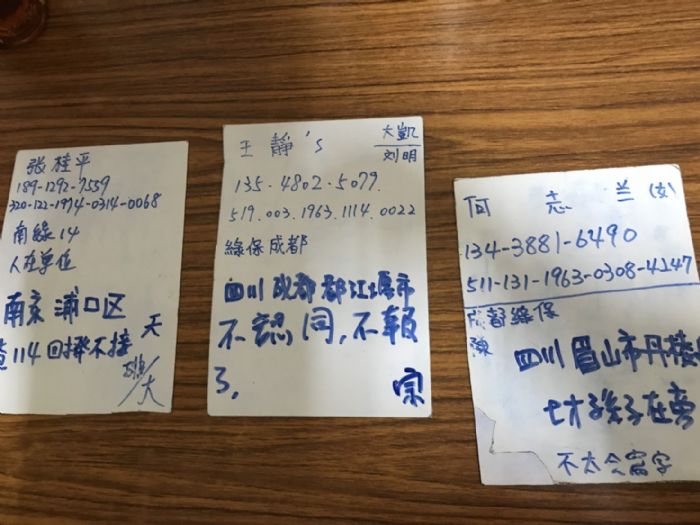 张桂平
189-1292-7559
320-122-1974-0314-0068
南線14
人在单位
南京浦口区
114回撥不接
天
王靜's
大凱
刘明
135.4802.5079
519.003.1963.1114.0022
綠保成都
四川成都都江堰市
不認同,不報
了.
宗
何志兰(女)
134-3881-6490
511-131-1963-0308-4147
成都綠保
陳
四川眉山市丹棱
七才孫子在旁
不太会寫字